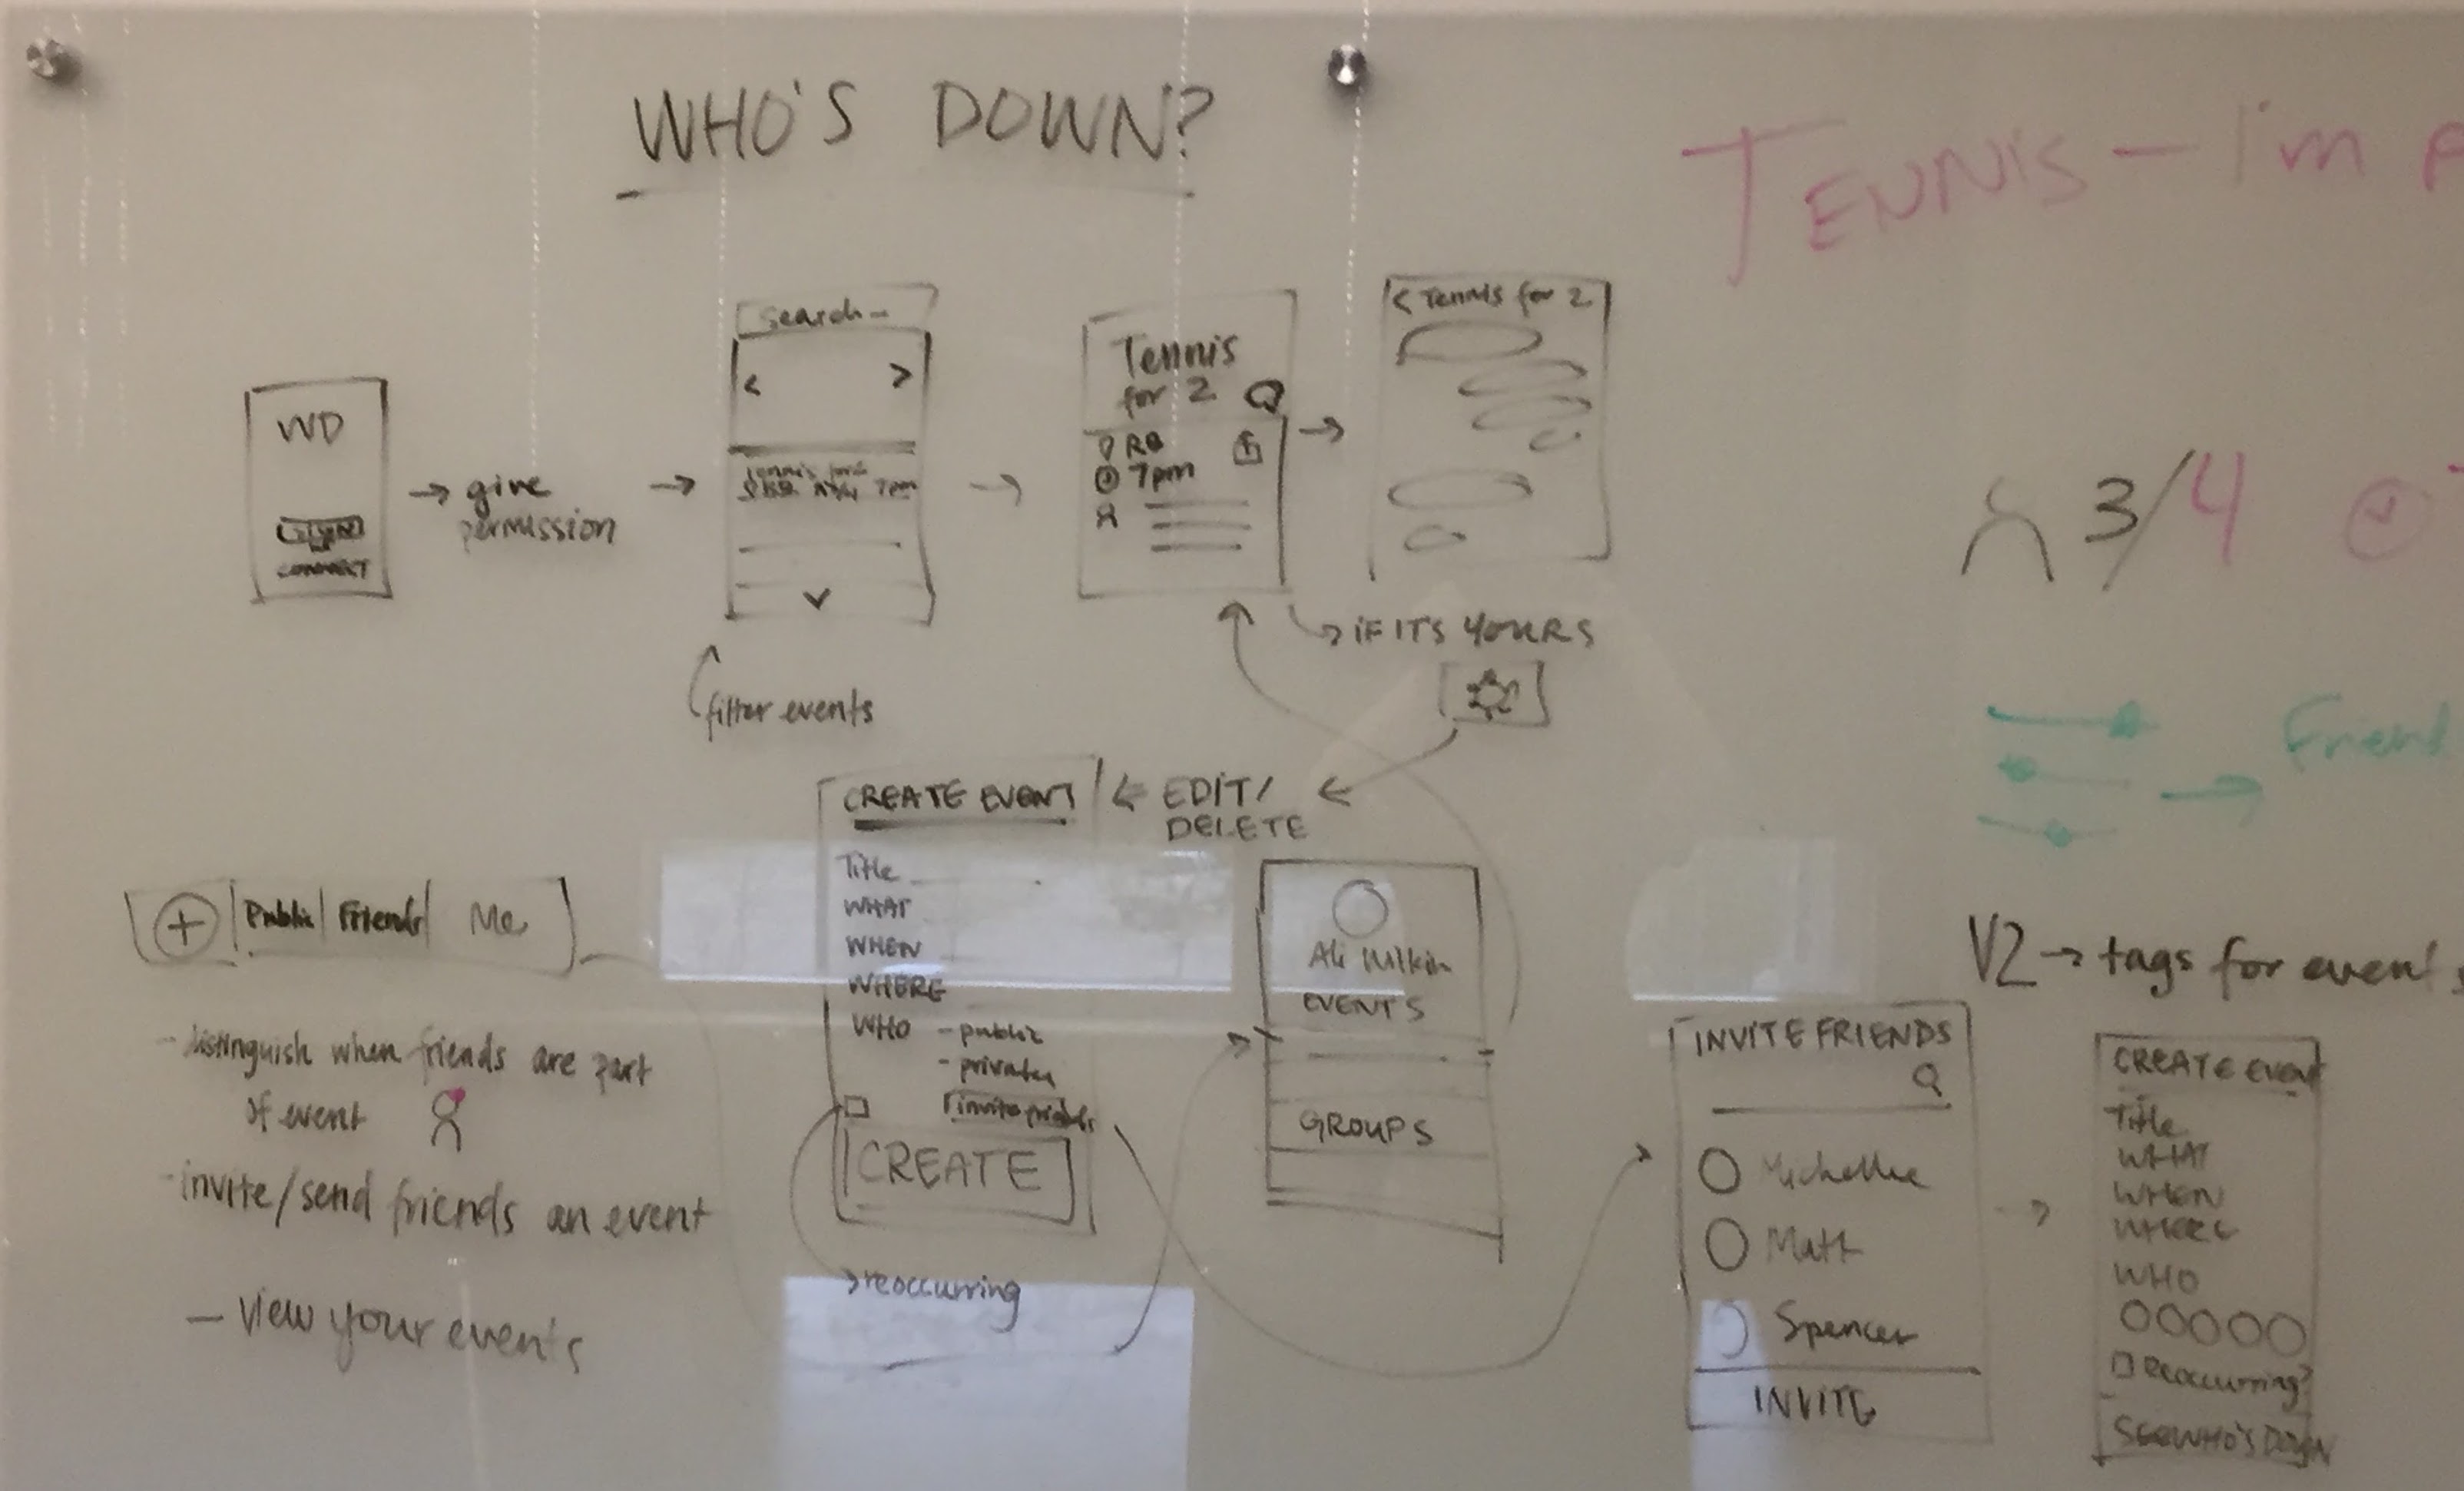 WHO'S DOWN?
TENNIS – I'm
WD
CONNECT
→ give
permission
search –
< >
7pm
filter events
Tennis
for 2
RB
7pm
< Tennis for 2
→ IF IT'S YOURS
3/4
Friend
CREATE EVENT
← EDIT/
DELETE
Title
WHAT
WHEN
WHERE
WHO - public
- private
invite friends
CREATE
→ reoccurring
+ | Public | Friends | Me
- distinguish when friends are part
of event
- invite/send friends an event
- View your events
Ali
EVENTS
GROUPS
V2 → tags for events
INVITE FRIENDS
Michelle
Matt
Spencer
INVITE
CREATE EVENT
Title
WHAT
WHEN
WHERE
WHO
Reoccurring?
SEE WHO'S DOWN